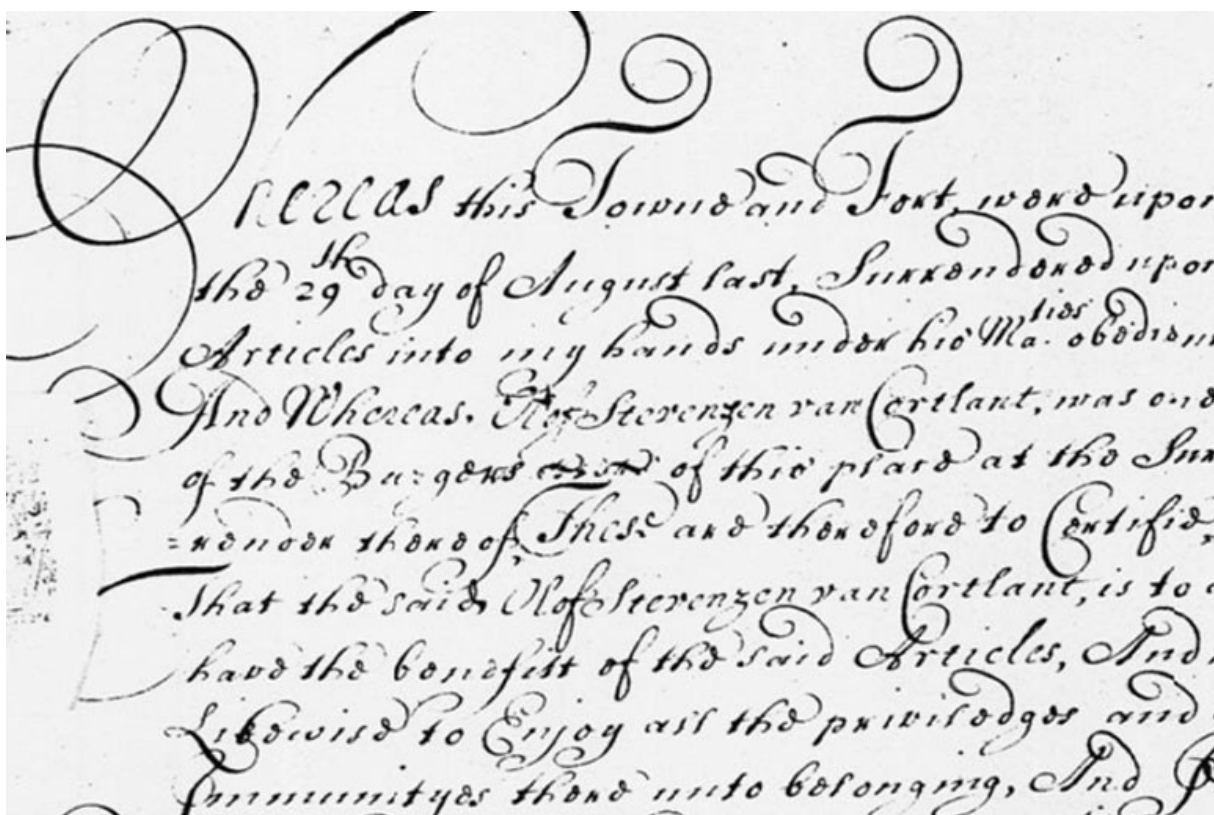 Whereas this Towne and Fort, were upon
the 29th day of August last, Surrendered upon
Articles into my hands under his Ma.ties obedien
And Whereas, Olof Stevenzen van Cortlant, was one
of the Burgers of this place at the Sur
=render thereof, These are therefore to Certifie,
That the said Olof Stevenzen van Cortlant, is to
have the benefitt of the said Articles, And
Likewise to Enjoy all the priviledges and
Immunityes there unto belonging, And